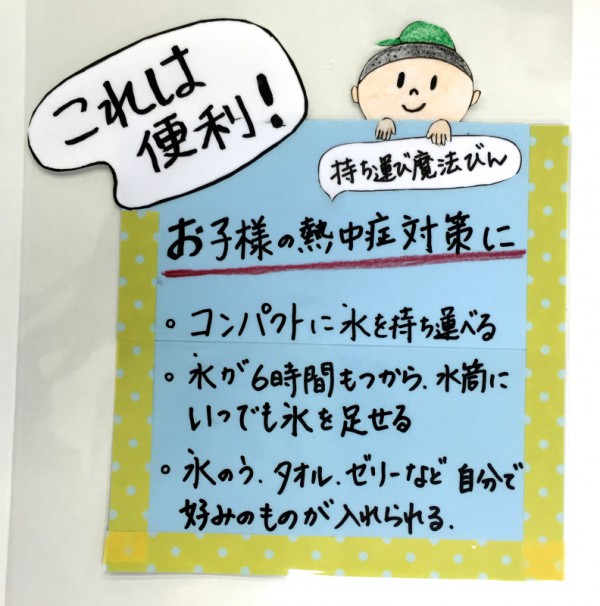 これは
便利!
持ち運び魔法びん
お子様の熱中症対策に
。コンパクトに氷を持ち運べる
。氷が6時間もつから、水筒に
いつでも氷を足せる
。氷のう、タオル、ゼリーなど自分で
好みのものが入れられる.